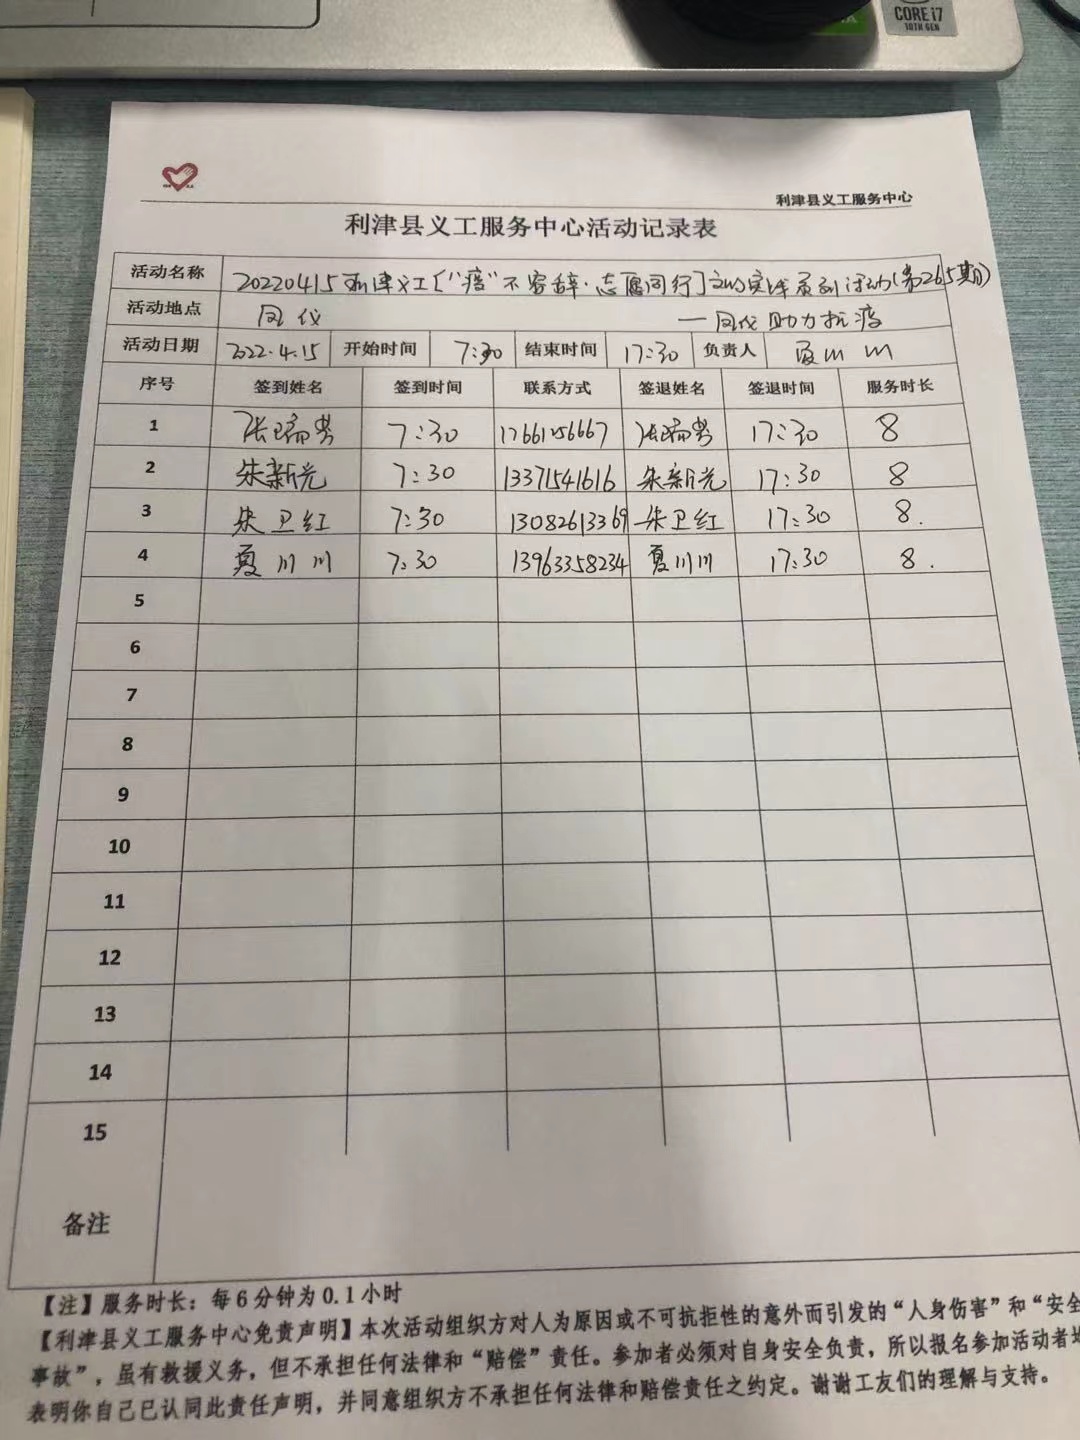 CORE i7
10TH GEN
利津县义工服务中心
利津县义工服务中心活动记录表
活动名称 20220415利津义工〔“疫”不容辞·志愿同行〕文明实践系列活动(第265期)
活动地点 凤仪 一凤仪助力抗疫
活动日期 2022.4.15 开始时间 7:30 结束时间 17:30 负责人 夏川川
序号 签到姓名 签到时间 联系方式 签退姓名 签退时间 服务时长
1 张瑞芳 7:30 17661256667 张瑞芳 17:30 8
2 朱新光 7:30 13371541616 朱新光 17:30 8
3 朱卫红 7:30 13082613369 朱卫红 17:30 8.
4 夏川川 7:30 13963358234 夏川川 17:30 8.
5
6
7
8
9
10
11
12
13
14
15
备注
【注】服务时长：每6分钟为0.1小时
【利津县义工服务中心免责声明】本次活动组织方对人为原因或不可抗拒性的意外而引发的“人身伤害”和“安全
事故”，虽有救援义务，但不承担任何法律和“赔偿”责任。参加者必须对自身安全负责，所以报名参加活动者均
表明你自己已认同此责任声明，并同意组织方不承担任何法律和赔偿责任之约定。谢谢工友们的理解与支持。